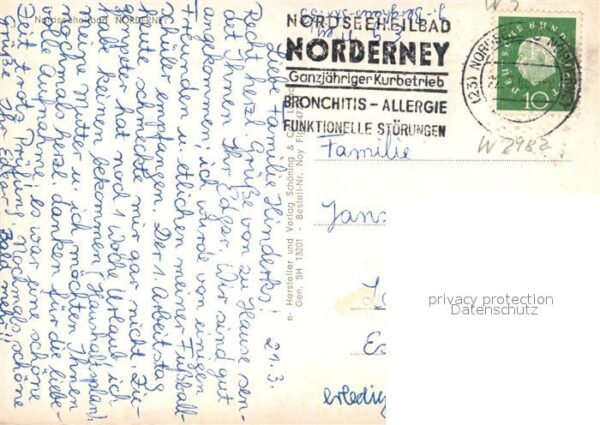 Nordseeheilbad NORDERNEY
NORDSEEHEILBAD
NORDERNEY
Ganzjähriger Kurbetrieb
BRONCHITIS – ALLERGIE
FUNKTIONELLE STÖRUNGEN
DEUTSCHE BUNDESPOST
10
W 2982
Familie
Jans
erledig
privacy protection
Datenschutz
Hersteller und Verlag Schöning &
Gen. SH 13201 - Bestell-Nr. Ney
21.3.
Liebe Familie Hinderks!
Recht herzl. Grüße von zu Hause sen-
det Ihnen Ihr Wir sind gut
angekommen; ich wurde von einigen
Freunden u. etlichen meiner Fußball-
schüler empfangen. Der 1. Arbeitstag
heute schmeckte mir gar nicht. Zu-
hat noch 1 Woche Urlaub, ich
habe keinen bekommen (Haushaltsplan).
Meine Mutter u. ich möchten Ihnen
nochmals herzl. danken für die liebe-
volle Aufnahme; es war eine schöne
Zeit trotz Prüfung. Nochmals schöne
Grüße Ihr
Bald mehr!